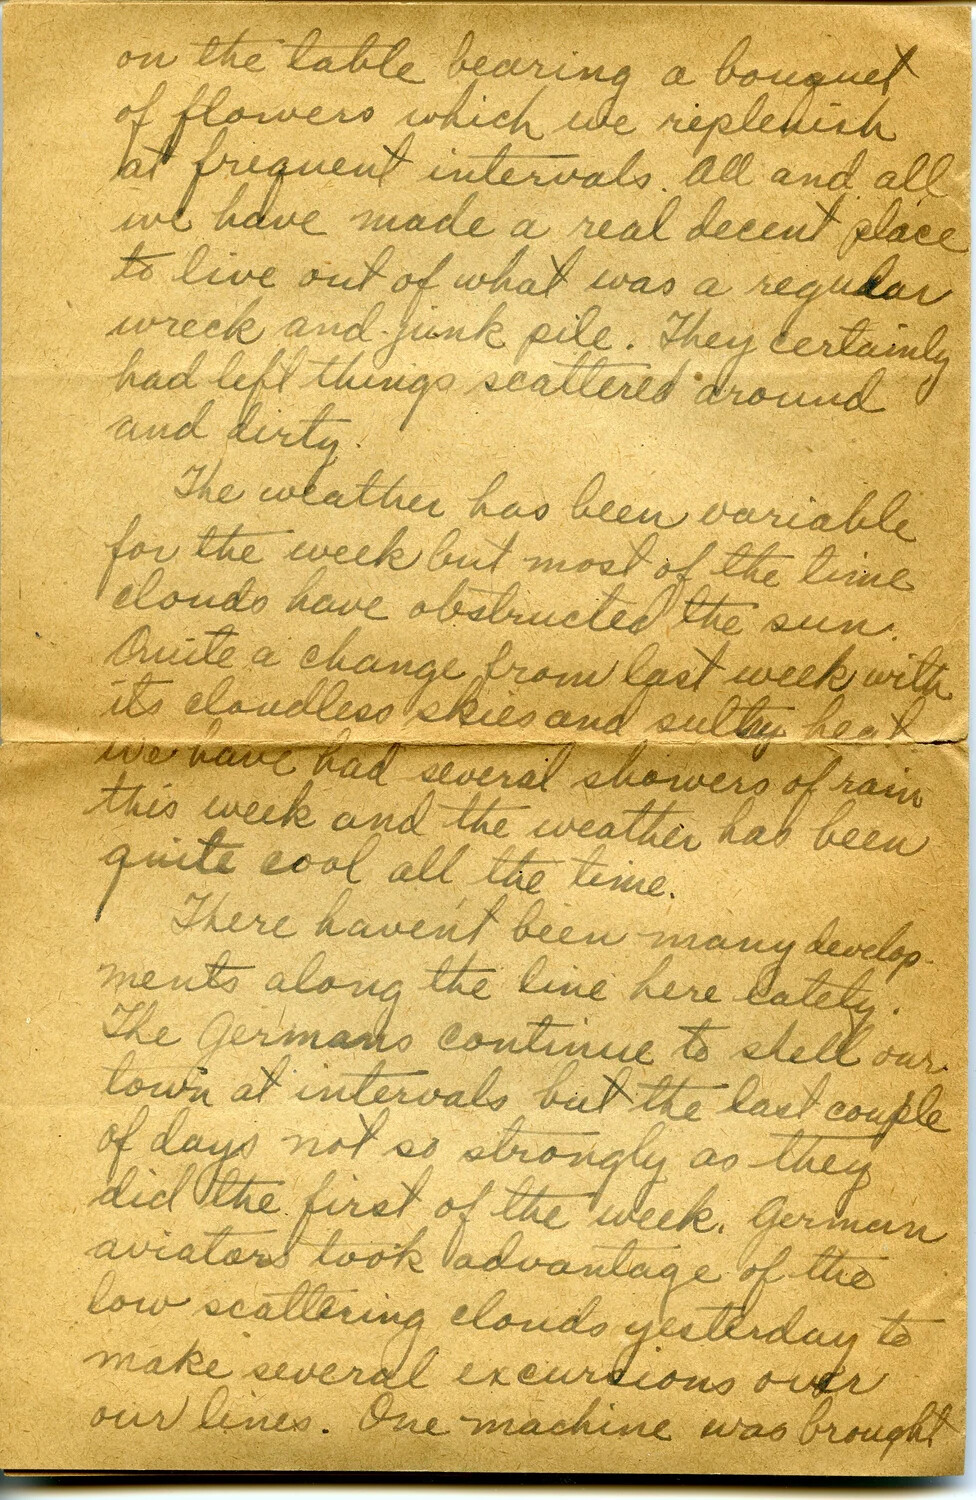 on the table bearing a bouquet
of flowers which we replenish
at frequent intervals. All and all
we have made a real decent place
to live out of what was a regular
wreck and junk pile. They certainly
had left things scattered around
and dirty.
The weather has been variable
for the week but most of the time
clouds have obstructed the sun.
Quite a change from last week with
its cloudless skies and sultry heat
we have had several showers of rain
this week and the weather has been
quite cool all the time.
There haven't been many develop-
ments along the line here lately.
The Germans continue to shell our
town at intervals but the last couple
of days not so strongly as they
did the first of the week. German
aviators took advantage of the
low scattering clouds yesterday to
make several excursions over
our lines. One machine was brought